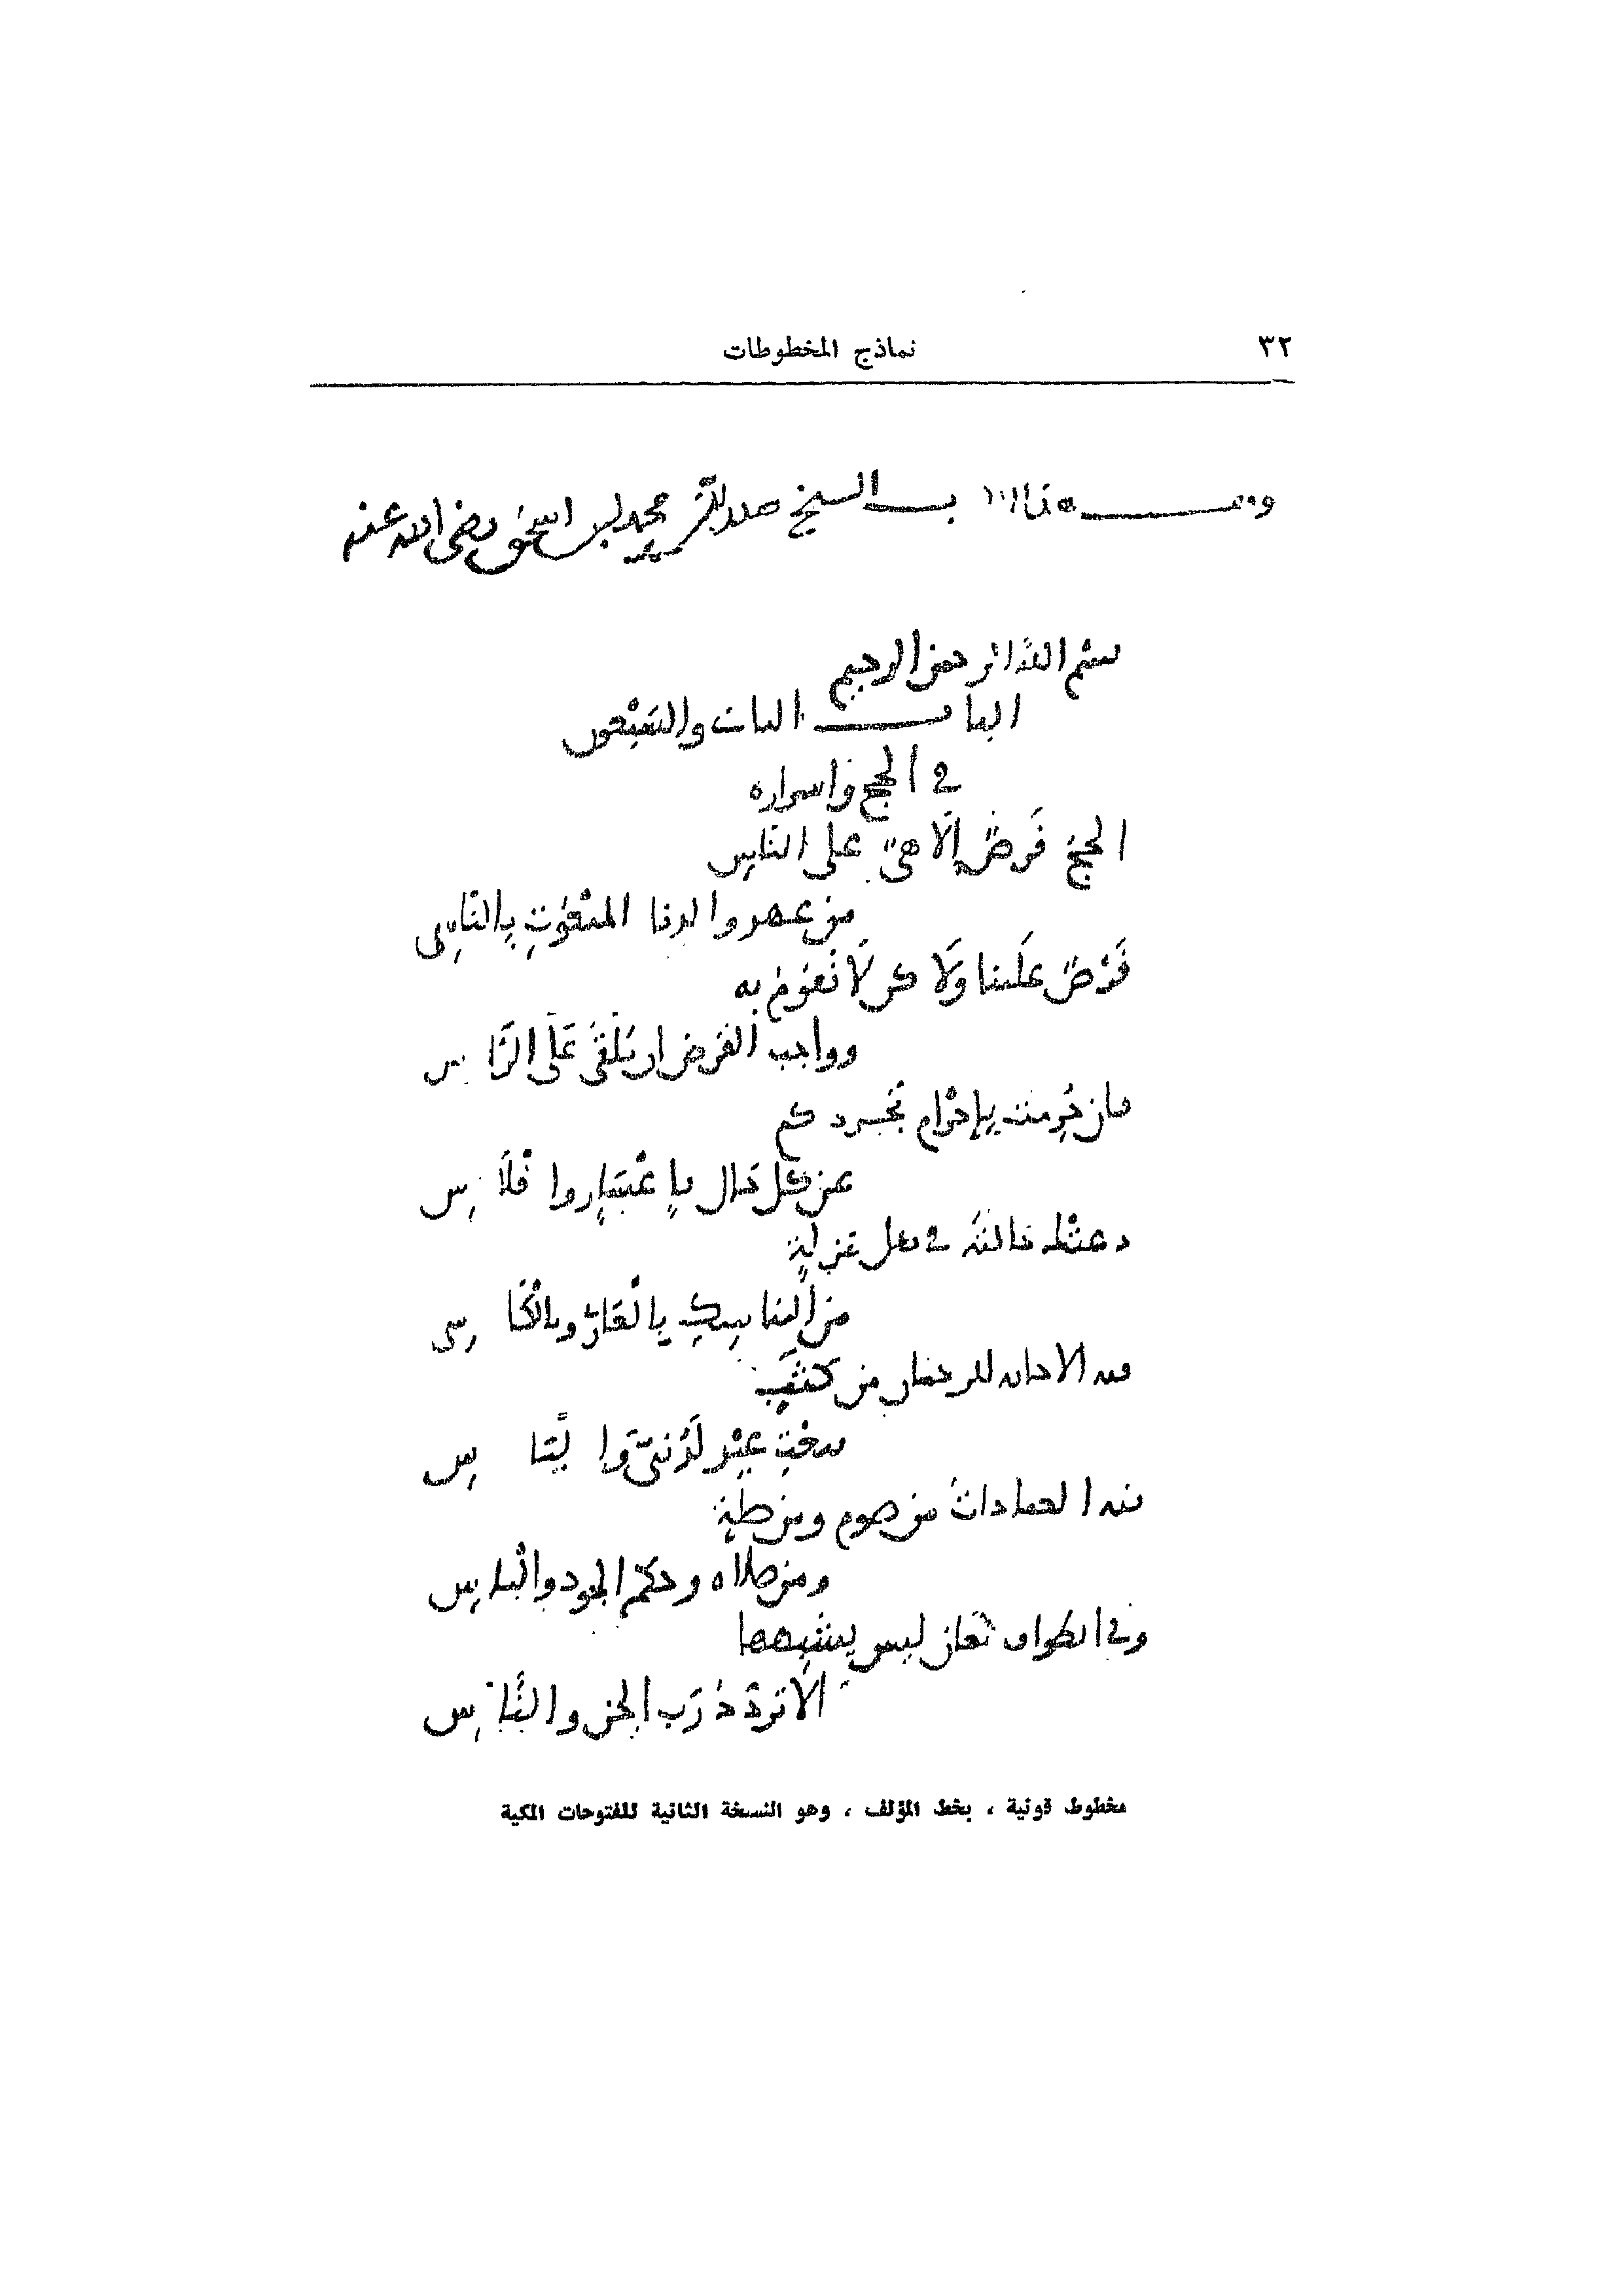 ٣٢
نماذج المخطوطات
وقف هذا الشيخ صدر الدين محمد بن اسحق رضى الله عنه
بسم الله الرحمن الرحيم
الباب الثانى والسَبْعون
فى الحج واسراره
الحج فَرضٌ إلَاهىّ على النّاسِ
من عهد والدنا المنْعوتِ بِالنّاسِى
فَرْضٌ عَلَينا وَلاكن لَا نَقومُ به
وواجب الفَرض ان يُلْقَى عَلَى الرَّاسِ
فان حُرِمت بِإحْرام تجردكم
عن كل حَال بِإعْسَارٍ وافْلَاسِ
دعتْك حالتُه فى كل منزلةٍ
من المناسكِ بِالْعَارى وبالْكَاسِى
فيه الاجابه للرحمان من كَثَبٍ
بنعْتِ عَبْدٍ لَدُنىّ وَإلْيَاسِ
فيه العبادات من صوم ومن صلةٍ
ومن صلاه وحكم الجود والباسِ
وفى الطواف مَعانٍ ليس يشبهها
الّا تردّدُ رَبّ الجن والنّاسِ
مخطوط قونية ، بخط المؤلف ، وهو النسخة الثانية للفتوحات المكية